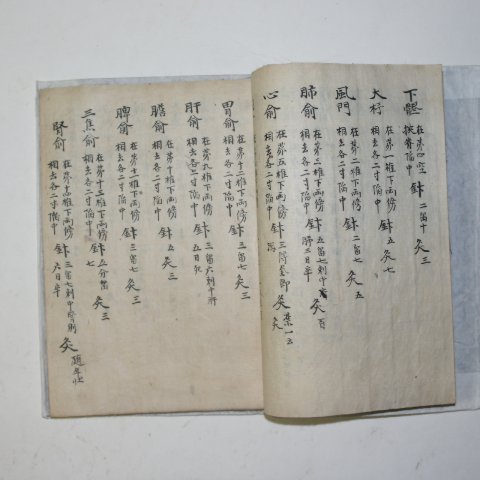 下髎 在第四空
挾脊陷中 針 二留十 灸 三
大杼 在第一椎下両傍
相去各二寸陷中 針 五 灸 七
風門 在第二椎下両傍
相去各二寸陷中 針 五留七 灸 五
肺俞 在第三椎下両傍
相去各二寸陷中 針 五留七刺中
肺三日卒 灸 百
心俞 在第五椎下両傍
相去各二寸陷中 針 三 灸
胃俞 在第十二椎下両傍
相去各二寸陷中 針 三留七 灸 三
肝俞 在第九椎下両傍
相去各二寸陷中 針 三留六刺中肝
五日死 灸 三
膽俞 在第十椎下両傍
相去各二寸陷中 針 五 灸 三
脾俞 在第十一椎下両傍
相去各二寸陷中 針 三留七 灸 三
三焦俞 在第十三椎下両傍
相去各二寸陷中 針 五分留
七 灸 三
腎俞 在第十四椎下両傍
相去各二寸陷中 針 三留七刺中腎則
六日卒 灸 随年壯